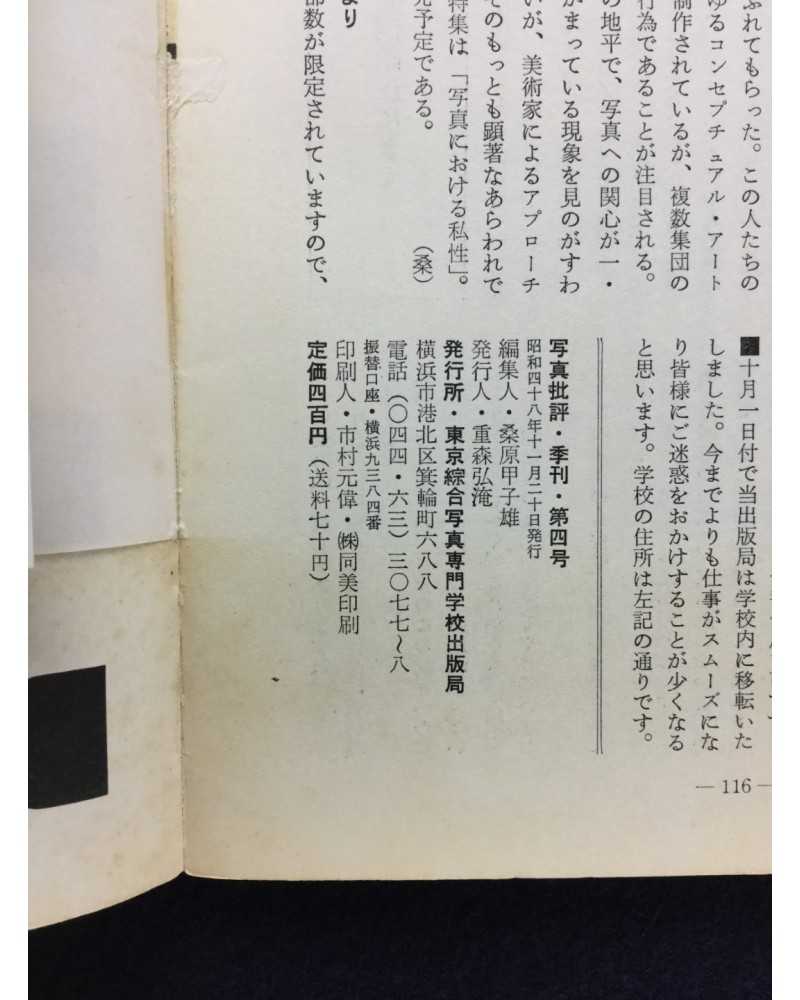 ふれてもらった。この人たちの
ゆるコンセプチュアル・アート
制作されているが、複数集団の
行為であることが注目される。
の地平で、写真への関心が一・
がまっている現象を見のがすわ
いが、美術家によるアプローチ
そのもっとも顕著なあらわれで
特集は「写真における私性」。
予定である。
(桑)
より
部数が限定されていますので、
■十月一日付で当出版局は学校内に移転いた
しました。今までよりも仕事がスムーズにな
り皆様にご迷惑をおかけすることが少くなる
と思います。学校の住所は左記の通りです。
写真批評・季刊・第四号
昭和四十八年十一月二十日発行
編集人・桑原甲子雄
発行人・重森弘淹
発行所・東京綜合写真専門学校出版局
横浜市港北区箕輪町六八八
電話(〇四四・六三)三〇七七〜八
振替口座・横浜九三八四番
印刷人・市村元偉・㈱同美印刷
定価四百円(送料七十円)
— 116 —